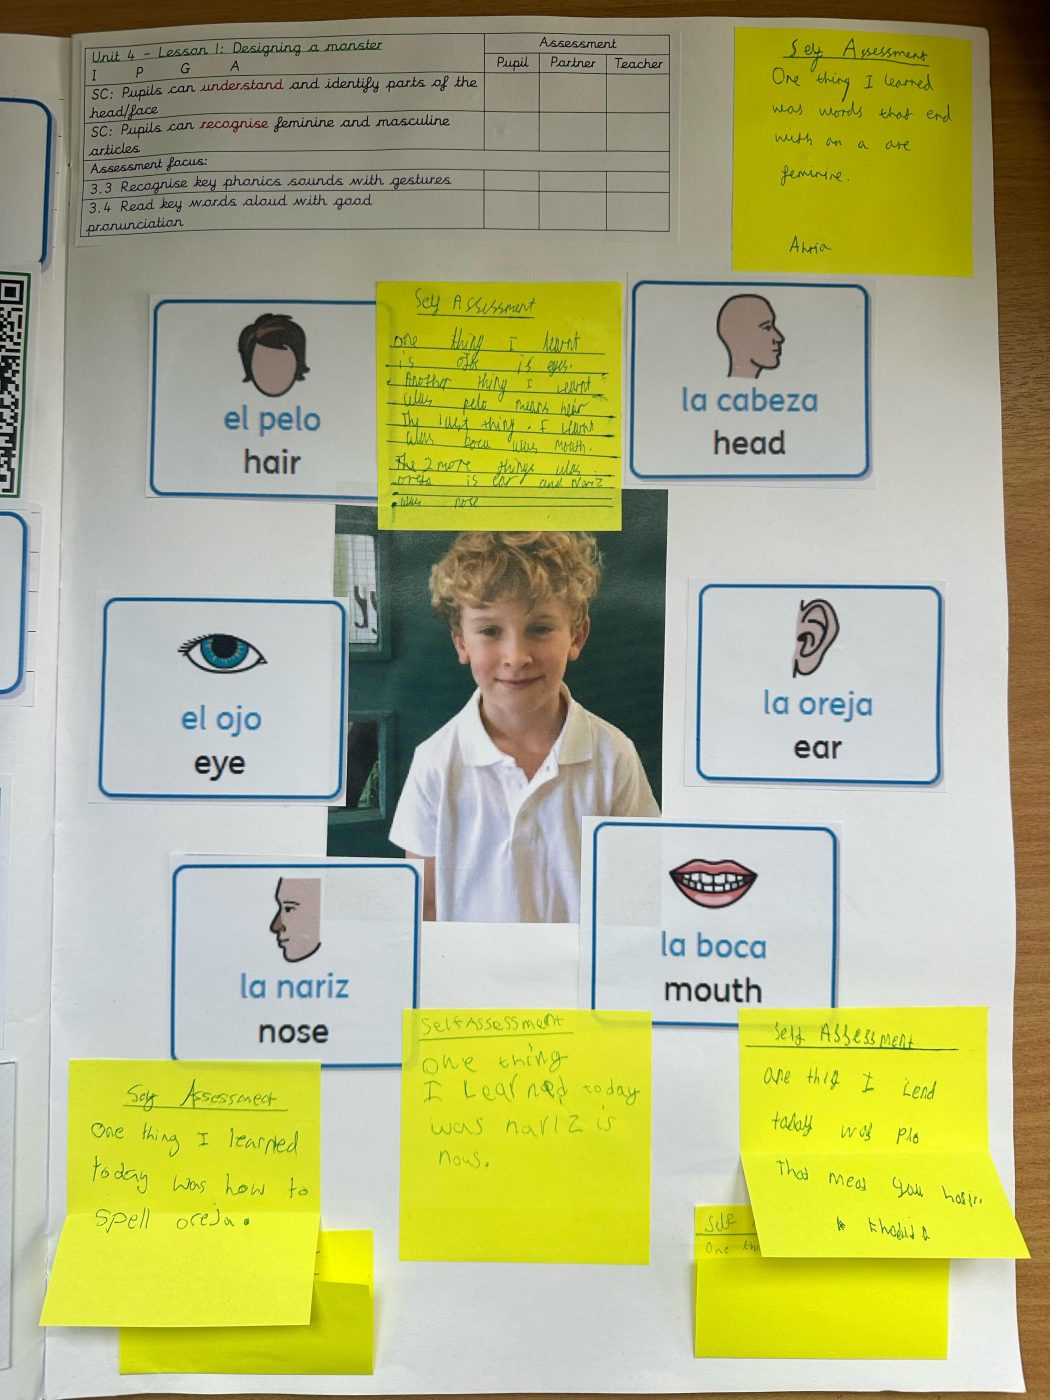 Unit 4 - Lesson 1: Designing a monster
Assessment
I P G A
Pupil Partner Teacher
SC: Pupils can understand and identify parts of the
head/face
SC: Pupils can recognise feminine and masculine
articles
Assessment focus:
3.3 Recognise key phonics sounds with gestures
3.4 Read key words aloud with good
pronunciation
Self Assessment
One thing I learned
was words that end
with an a are
feminine.
el pelo
hair
Self Assessment
one thing I learnt
is ojo is eyes.
Another thing I learnt
was pelo means hair
The last thing I learnt
was boca was mouth.
The 2 more things was
oreja is ear and nariz
was nose
la cabeza
head
el ojo
eye
la oreja
ear
la nariz
nose
la boca
mouth
Self Assessment
One thing I learned
today was how to
spell oreja.
Self Assessment
One thing
I Learned today
was nariz is
nous.
Self Assessment
one thig I lend
today was plo
That meas you
Self
One thi